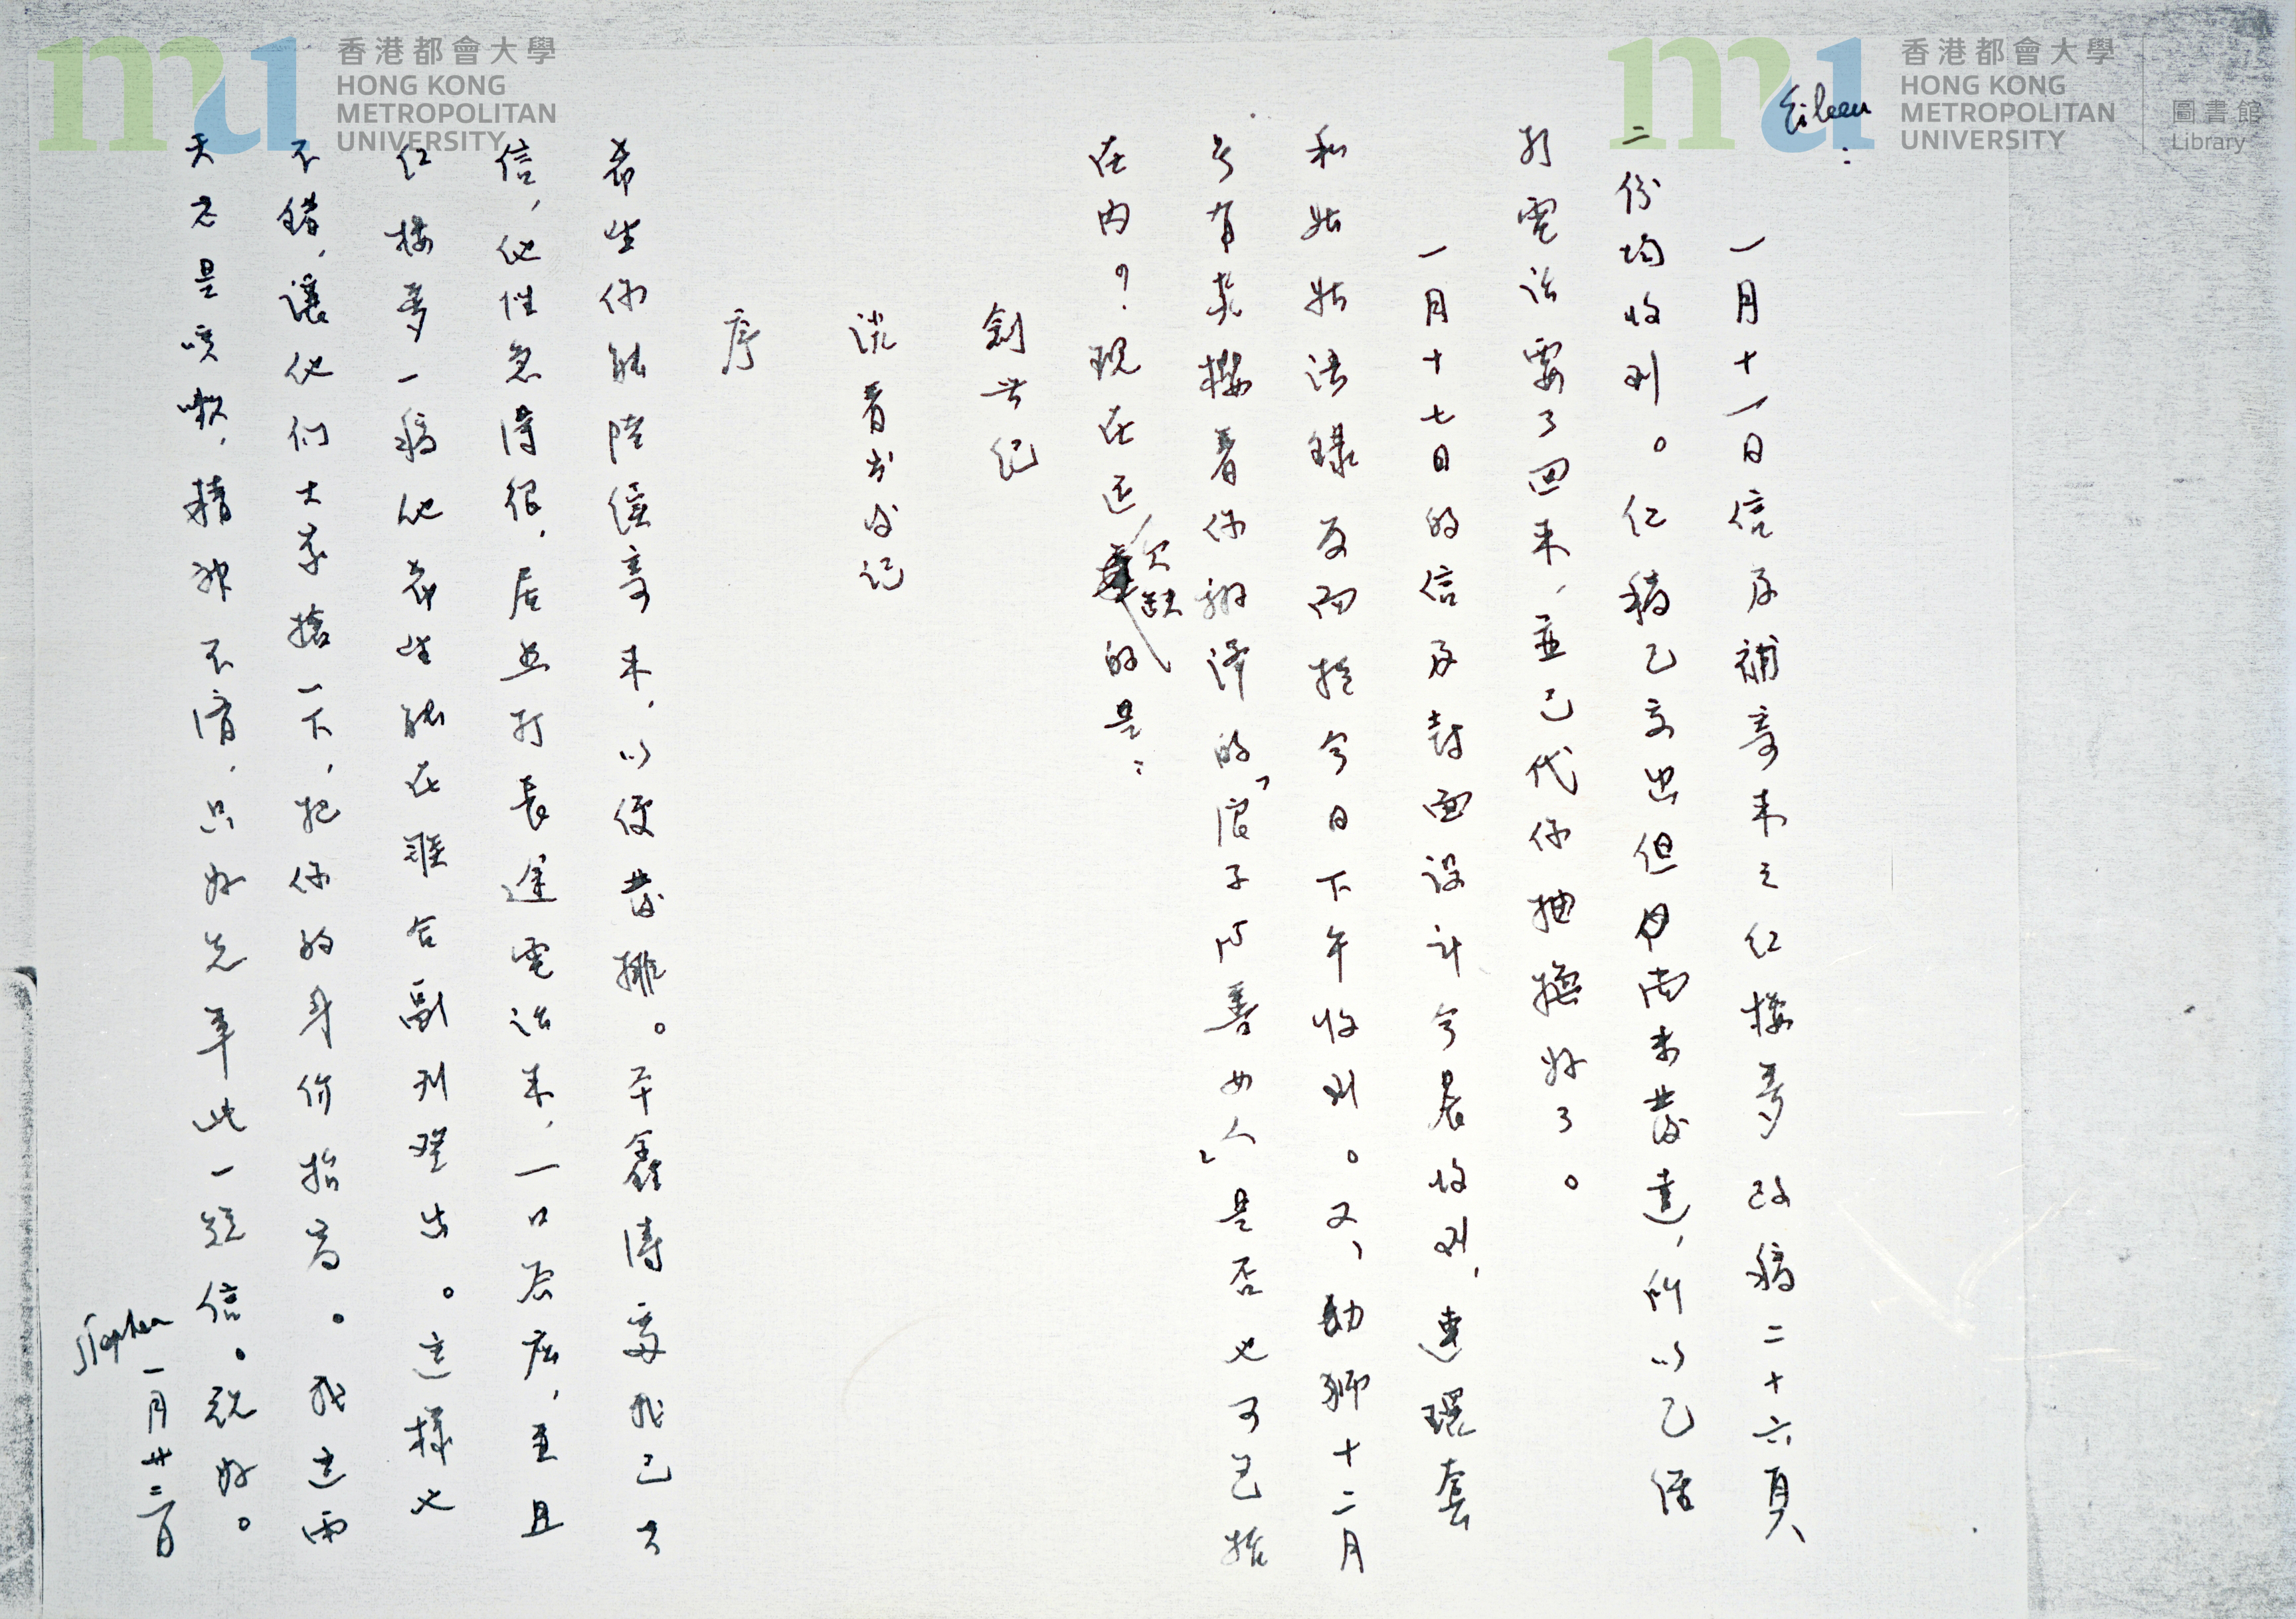 香港都會大學
HONG KONG
METROPOLITAN
UNIVERSITY
香港都會大學
HONG KONG
METROPOLITAN
UNIVERSITY
圖書館
Library
Eileen:
一月十一日信及補寄來之紅樓夢改稿二十六頁
二份均收到。紅稿已交出但尚未發還,所以已
打電話要了回來,並已代你抽換好了。
一月十七日的信及封面設計今晨收到,連環套
和姑姑語錄反而於今日下午收到。又,幼獅十二月
号有美櫻看你翻譯的「浪子与善女人」是否也可包括
在內?現在還欠缺的是:
創世紀
談看書後記
序
希望你能陸續寄來,以便發排。平鑫濤處我已去
信,他性急得很,居然打長途電話來,一口答應,並且
紅樓夢一稿他希望能在聯合副刊登出。這樣也
不錯,讓他們大家搶一下,把你的身价抬高。我這兩
天老是咳嗽,精神不濟,只好先草此一短信。祝好。
Stephen
一月廿三日